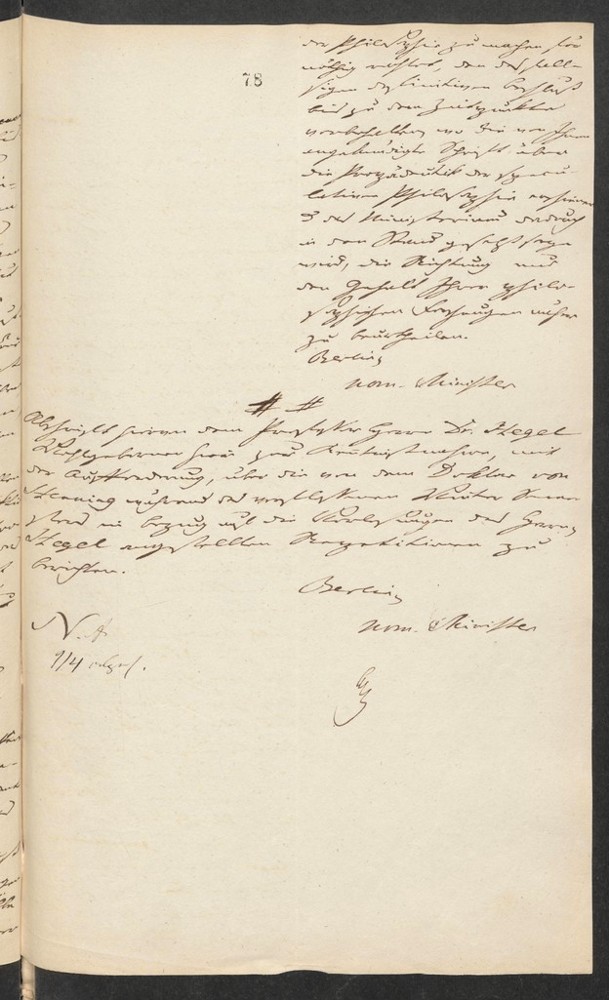 78
der Philosophie zu machen für
nöthig erachtet, den desfall-
sigen definitiven Beschluß
bis zu dem Zeitpunkte
vorbehalten, wo die von Ihnen
angekündigte Schrift über
die Propädeutik der specu-
lativen Philosophie erschienen
& das Ministerium dadurch
in den Stand gesetzt seyn
wird, die Richtung und
den Gehalt Ihrer philo-
sophischen Forschungen näher
zu beurtheilen.
Berlin,
nom. Ministers
# #
Abschrift hiervon dem Professor Herrn Dr. Hegel
Wohlgeboren hier zur Kenntnißnahme, mit
der Aufforderung, über die von dem Doktor von
Henning während des verflossenen Winter Semes-
ters in bezug auf die Vorlesungen des Herrn
Hegel angestellten Repetitionen zu
berichten.
Berlin,
nom. Ministers
N. A.
1/4